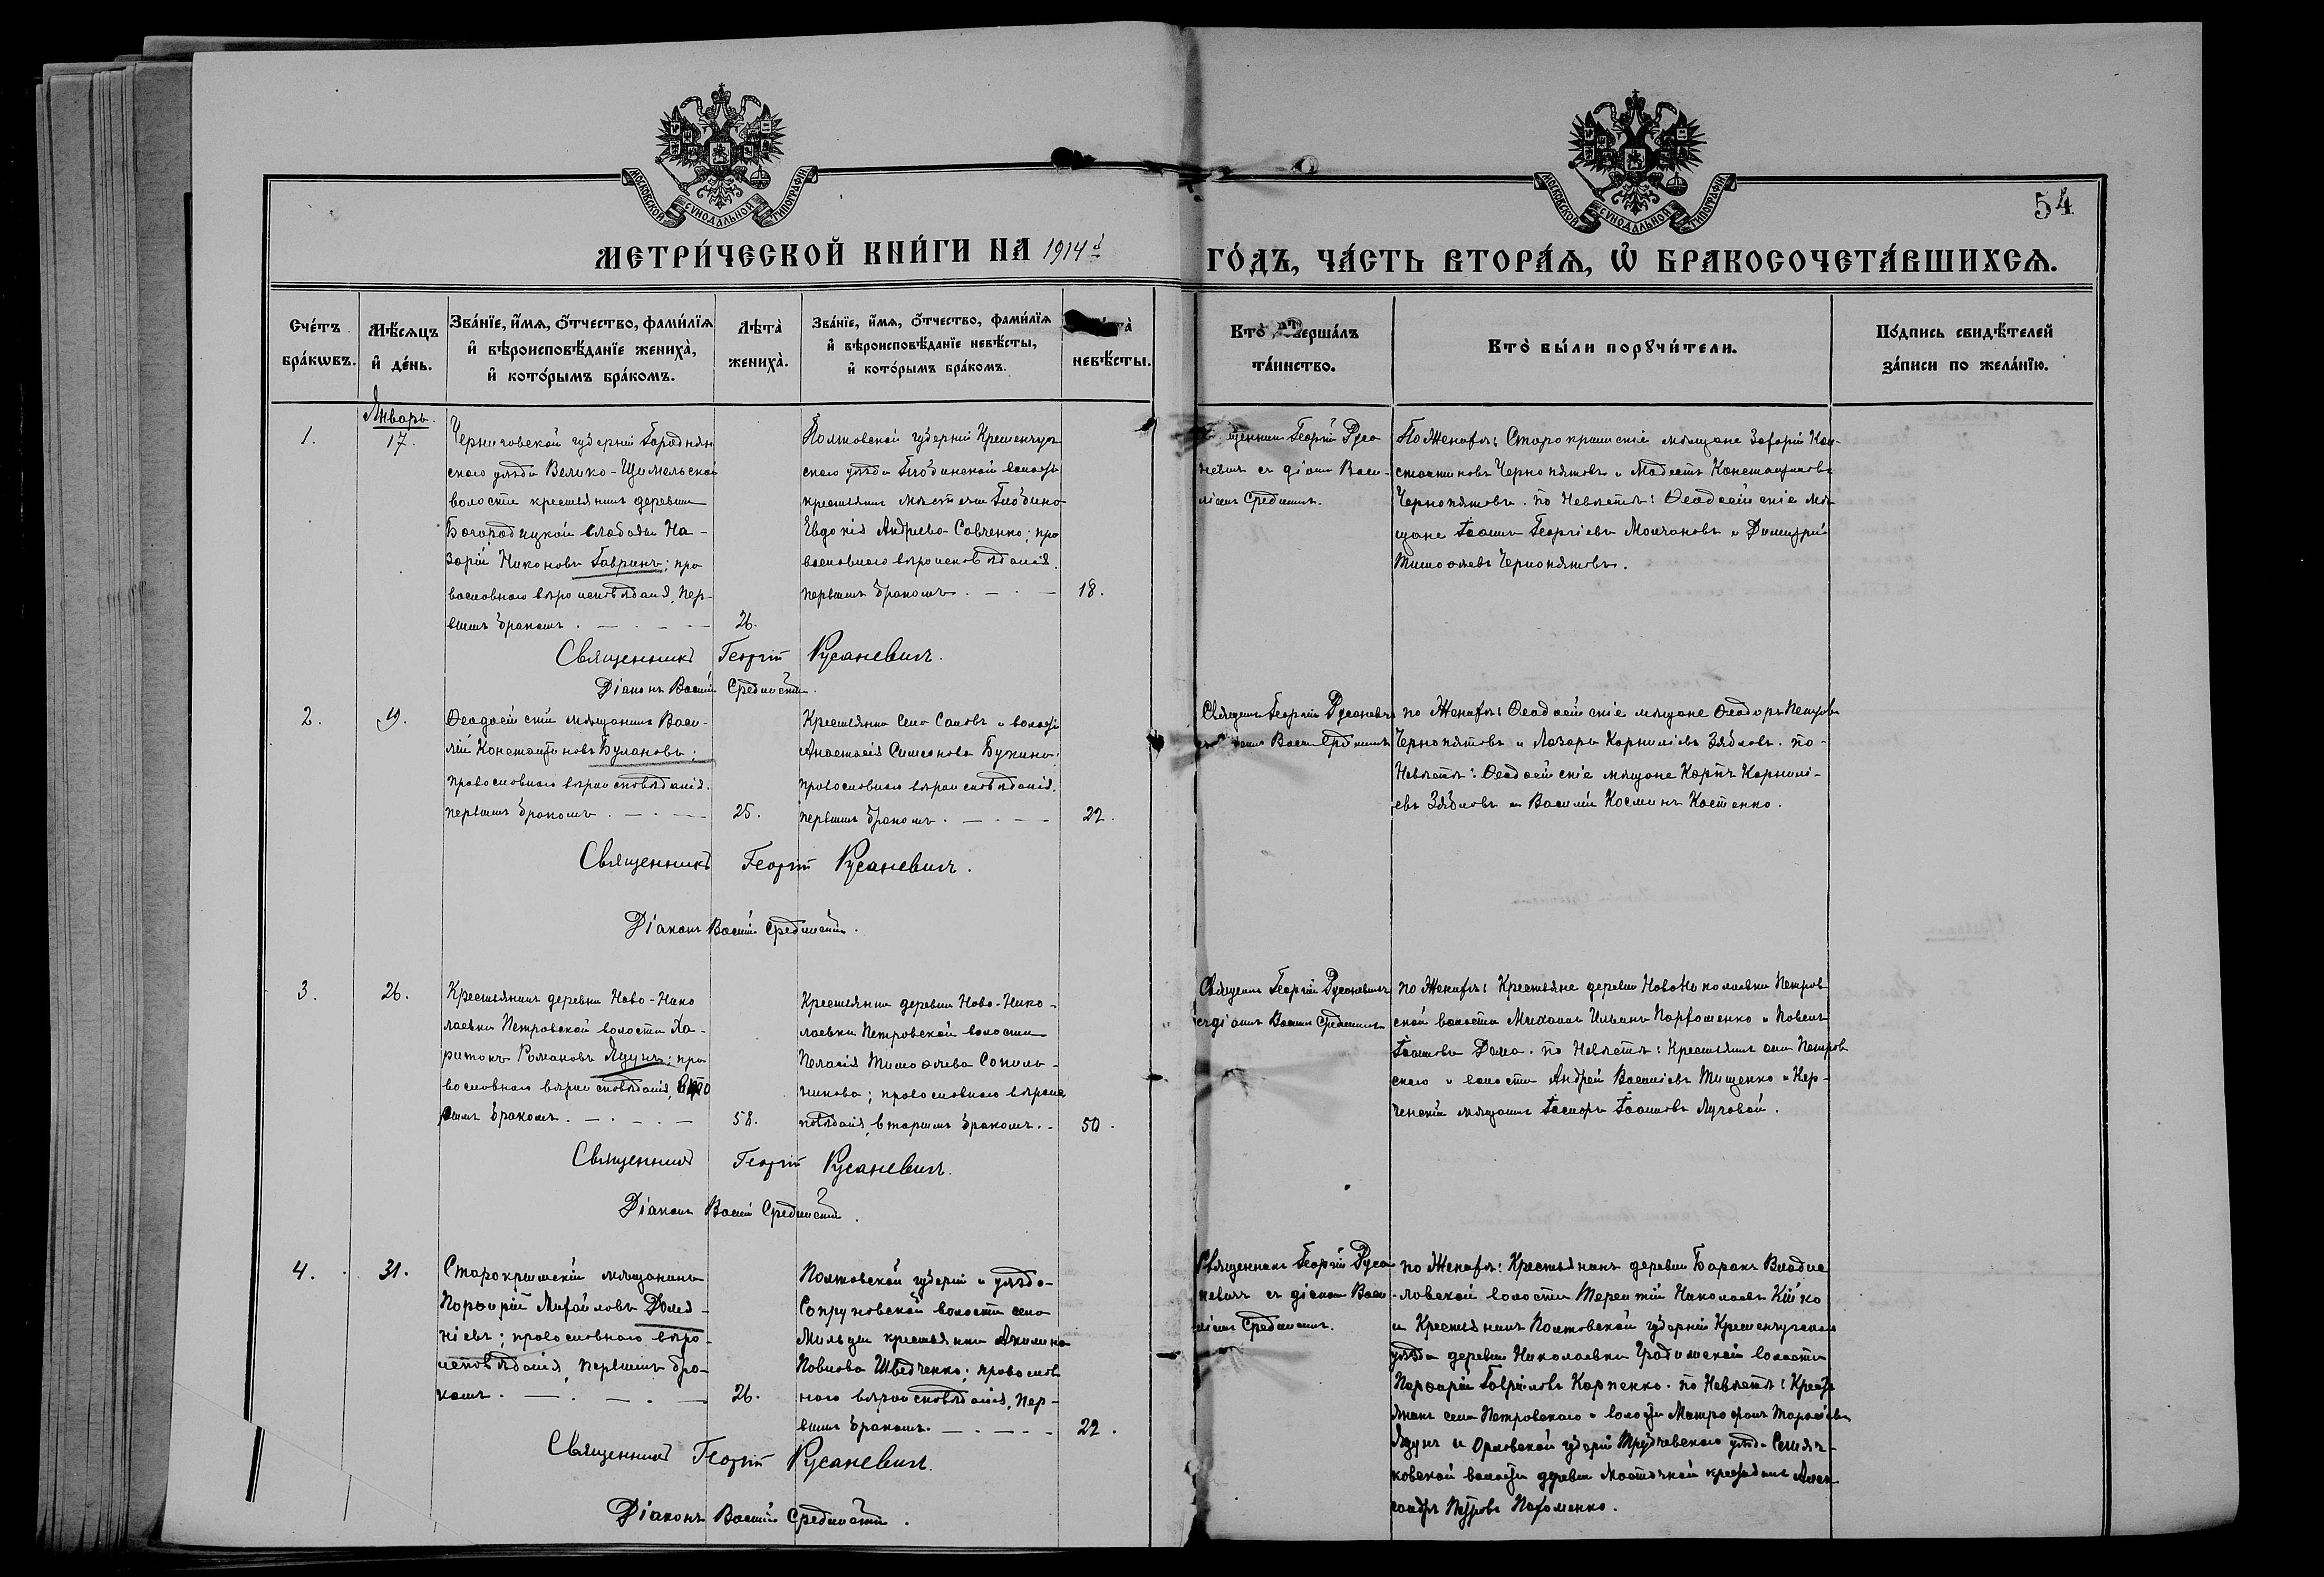 МОСКОВСКОЙ СѴНОДАЛЬНОЙ ТИПОГРАФІИ
МОСКОВСКОЙ СѴНОДАЛЬНОЙ ТИПОГРАФІИ
54
МЕТРИ́ЧЕСКОЙ КНИ́ГИ НА 1914й
ГО́ДЪ, ЧА́СТЬ ВТОРА́Ѧ, Ѽ БРАКОСОЧЕТА́ВШИХСѦ.
Сче́тъ
бра́кѡвъ.
Мѣ́сѧцъ
и҆ де́нь.
Зва́нїе, и҆́мѧ, о҆́тчество, фами́лїѧ
и҆ вѣроисповѣ́данїе жениха̀,
и҆ кото́рымъ бра́комъ.
Лѣта̀
жениха̀.
Зва́нїе, и҆́мѧ, о҆́тчество, фами́лїѧ
и҆ вѣроисповѣ́данїе невѣ́сты,
и҆ кото́рымъ бра́комъ.
невѣ́сты.
Кто̀ соверша́лъ
та́инство.
Кто̀ бы́ли порꙋчи́тели.
По́дпись свидѣ́телей
за́писи по жела́нїю.
Январь.
1.
17.
Черниговской губерніи Городнян
скаго уѣзда Велико-Щимельской
волости крестьянинъ деревни
Богородицкой слободы На-
зарій Никоновъ Гавринъ; пра
вославнаго вѣроисповѣданія, пер-
вымъ бракомъ.
26.
Полтавской губерніи Кременчуг
скаго уѣзда Глобинской волости
крестьянка мѣстечка Глобино
Евдокія Андреева Савченко; пра
вославнаго вѣроисповѣданія.
первымъ бракомъ.
18.
щенникъ Георгій Руса
невичъ съ діак. Васи-
ліемъ Срединскимъ.
По Женихѣ: Старокрымскіе мѣщане Захарій Кон-
стантиновъ Чернопятовъ и Модестъ Константиновъ
Чернопятовъ. по Невѣстѣ: Ѳеодосійскіе мѣ
щане Іоаннъ Георгіевъ Молчановъ и Димитрій
Тимоѳеевъ Чернопятовъ.
Священникъ Георгій Русаневичъ.
Діаконъ Василій Срединскій.
2.
19.
Ѳеодосійскій мѣщанинъ Васи-
лій Константиновъ Булановъ;
православнаго вѣроисповѣданія.
первымъ бракомъ.
25.
Крестьянка села Саловъ и волости
Анастасія Симеонова Букина;
православнаго вѣроисповѣданія.
первымъ бракомъ.
22.
Священ. Георгій Русаневичъ
Васил. Срединскимъ
по Женихѣ: Ѳеодосійскіе мѣщане Ѳеодоръ Петровъ
Чернопятовъ и Лазарь Корниліевъ Зябловъ. по-
Невѣстѣ: Ѳеодосійскіе мѣщане Карпъ Корнилі-
евъ Зябловъ и Василій Косминъ Костенко.
Священникъ Георгій Русаневичъ.
Діаконъ Василій Срединскій.
3.
26.
Крестьянинъ деревни Ново-Нико
лаевки Петровской волости Ха-
ритонъ Романовъ Ядунъ; пра
вославнаго вѣроисповѣданія, вто
рымъ бракомъ.
58.
Крестьянка деревни Ново-Нико-
лаевки Петровской волости
Пелагія Тимоѳеева Сополь-
никова; православнаго вѣроис
повѣданія, вторымъ бракомъ.
50.
Священ. Георгій Русаневичъ
съ діак. Васил. Срединскимъ
по Женихѣ: Крестьяне деревни Новониколаевки Петров
ской волости Михаилъ Ильинъ Парфоменко и Павелъ
Іоанновъ. по Невѣстѣ: Крестьянинъ села Петров
скаго и волости Андрей Василіевъ Тищенко и Кер-
ченскій мѣщанинъ Іоанновъ Луговой.
Священникъ Георгій Русаневичъ.
Діаконъ Василій Срединскій.
4.
31.
Старокрымскій мѣщанинъ
Порфирій Михайловъ
православнаго вѣро-
исповѣданія, первымъ бра-
комъ.
26.
Полтавской губерніи и уѣзда
Супруновской волости села
Мильцы крестьянка Акилина
Павлова Шведченко; православ
наго вѣроисповѣданія, пер-
вымъ бракомъ.
22.
Священникъ Георгій Руса
невичъ съ діакон. Васи
ліемъ Срединскимъ.
по Женихѣ: Крестьянинъ деревни Баракъ Владис
лавской волости Терентій Николаевъ Кійко
и Крестьянинъ Полтавской губерніи Кременчугскаго
уѣзда деревни Николаевки Градижской волости
Порфирій Гавріиловъ Карпенко. по Невѣстѣ: Крест
янинъ села Петровскаго и волости Митрофанъ Тарасіевъ
Ядунъ и Орловской губерніи Трубчевскаго уѣзда
ковской волости деревни крестьянинъ Алек
сандръ Петровъ Пахоменко.
Священникъ Георгій Русаневичъ.
Діаконъ Василій Срединскій.